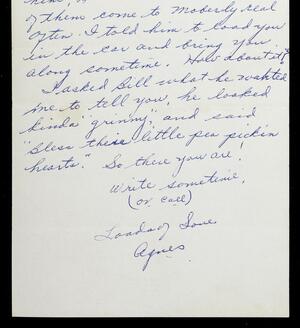 of them come to Moberly real
often. I told him to load you
in the car and bring you
along sometime. How about it?
I asked Bill what he wanted
me to tell you, he looked
kinda "grinny" and said
"Bless their little pea pickin
hearts." So there you are!
Write sometime,
(or call)
Loads of Love
Agnes